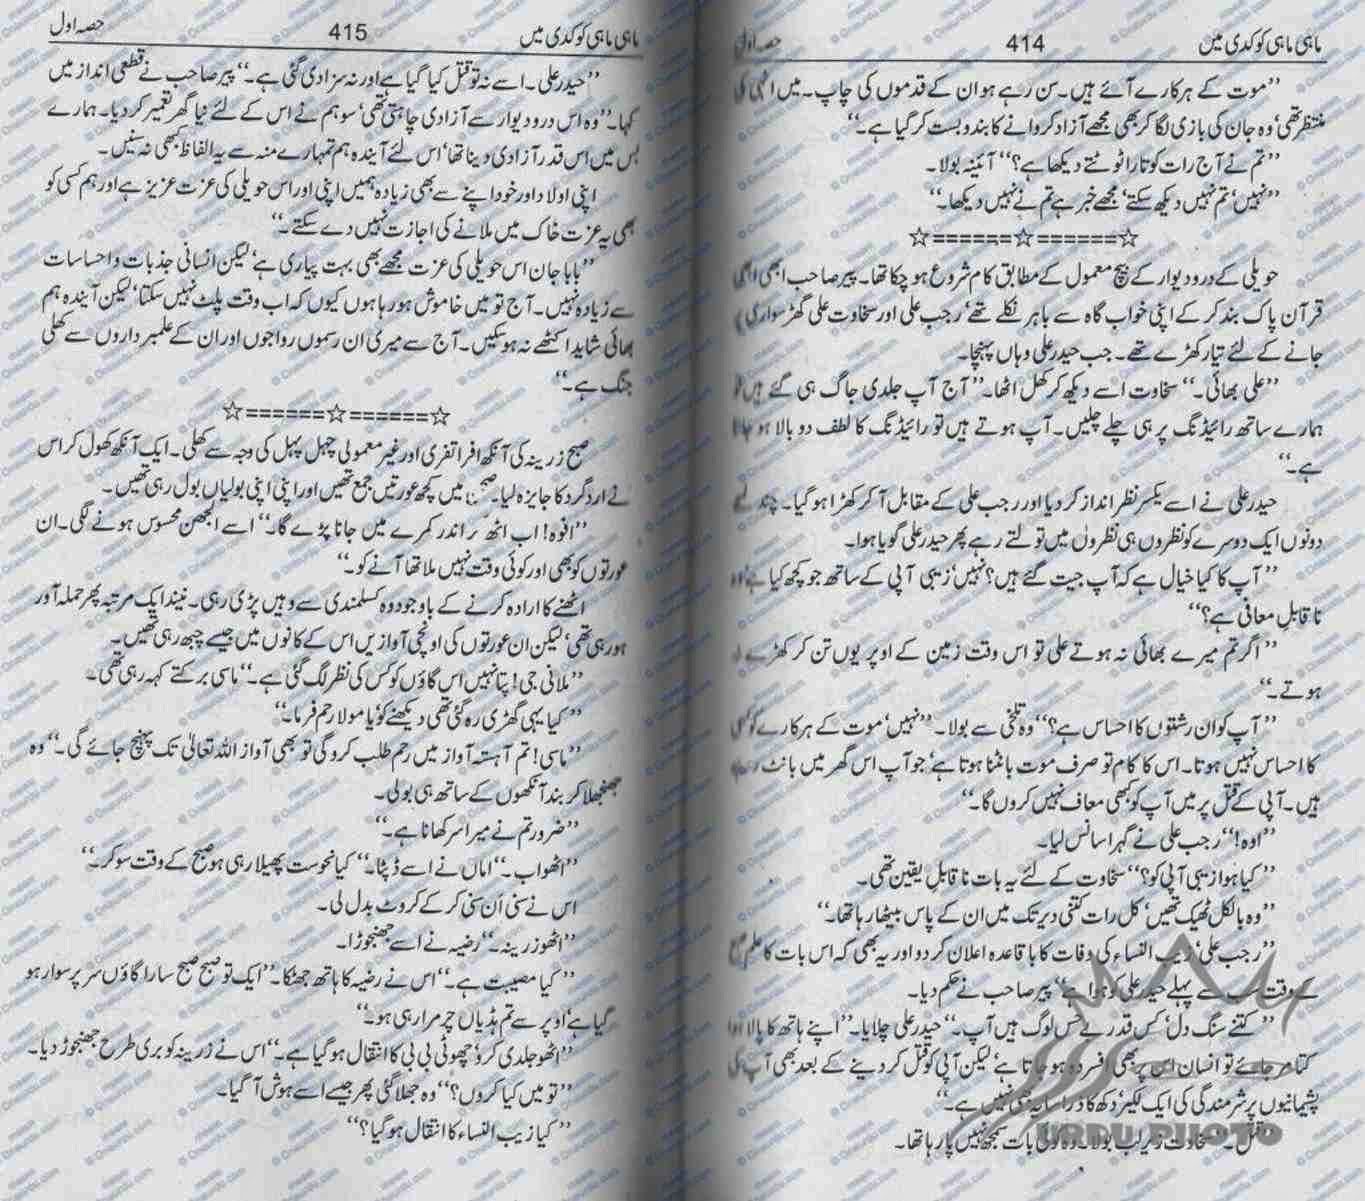 ماہی ماہی کوکدی میں 414 حصہ اول
”موت کے ہرکارے آئے ہیں۔ سن رہے ہو ان کے قدموں کی چاپ۔ میں انہی کی
منتظر تھی‘ وہ جان کی بازی لگا کر بھی مجھے آزاد کروانے کا بندوبست کر گیا ہے۔“
”تم نے آج رات کو تارا ٹوٹتے دیکھا ہے؟“ آئینہ بولا۔
”نہیں‘ تم نہیں دیکھ سکتے‘ مجھے خبر ہے تم نے نہیں دیکھا۔“
☆======☆======☆
حویلی کے در و دیوار کے بیچ معمول کے مطابق کام شروع ہو چکا تھا۔ پیر صاحب ابھی ابھی
قرآن پاک بند کر کے اپنی خواب گاہ سے باہر نکلے تھے‘ رجب علی اور سخاوت علی گھڑ سواری پر
جانے کے لئے تیار کھڑے تھے۔ جب حیدر علی وہاں پہنچا۔
”علی بھائی۔“ سخاوت اسے دیکھ کر کھل اٹھا۔ ”آج آپ جلدی جاگ ہی گئے ہیں تو
ہمارے ساتھ رائیڈنگ پر ہی چلے چلیں۔ آپ ہوتے ہیں تو رائیڈنگ کا لطف دوبالا ہو جاتا
ہے۔“
حیدر علی نے اسے یکسر نظر انداز کر دیا اور رجب علی کے مقابل آ کر کھڑا ہو گیا۔ چند لمحے
دونوں ایک دوسرے کو نظروں ہی نظروں میں تولتے رہے پھر حیدر علی گویا ہوا۔
”آپ کا کیا خیال ہے کہ آپ جیت گئے ہیں؟ نہیں‘ زیبی آپی کے ساتھ جو کچھ کیا ہے‘ وہ
ناقابلِ معافی ہے؟“
”اگر تم میرے بھائی نہ ہوتے علی تو اس وقت زمین کے اوپر یوں تن کر کھڑے نہ
ہوتے۔“
”آپ کو ان رشتوں کا احساس ہے؟“ وہ تلخی سے بولا۔ ”نہیں‘ موت کے ہرکارے کو کسی
کا احساس نہیں ہوتا۔ اس کا کام تو صرف موت بانٹنا ہوتا ہے‘ جو آپ اس گھر میں بانٹ رہے
ہیں۔ آپی کے قتل پر میں آپ کو کبھی معاف نہیں کروں گا۔“
”اوہ!“ رجب علی نے گہرا سانس لیا۔
”کیا ہوا زیبی آپی کو؟“ سخاوت کے لئے یہ بات ناقابلِ یقین تھی۔
”وہ بالکل ٹھیک تھیں‘ کل رات کتنی دیر تک میں ان کے پاس بیٹھا رہا تھا۔“
”رجب علی‘ زیب النساء کی وفات کا باقاعدہ اعلان کر دو اور یہ بھی کہ اس بات کا علم صبح
کے وقت سب سے پہلے حیدر علی کو ہوا ہے“ پیر صاحب نے حکم دیا۔
”کتنے سنگ دل‘ کس قدر بے حس لوگ ہیں آپ۔“ حیدر علی چلایا۔ ”اپنے ہاتھ کا پالا ہوا
کتا مر جائے تو انسان اس پر بھی افسردہ ہو جاتا ہے‘ لیکن آپی کو قتل کر دینے کے بعد بھی آپ کی
پیشانیوں پر شرمندگی کی ایک لکیر‘ دکھ کا ذرا سایہ نہیں ہے۔“
قتل۔ سخاوت زیر لب بولا۔ وہ کوئی بات سمجھ نہیں پا رہا تھا۔
URDU PHOTO
ماہی ماہی کوکدی میں 415 حصہ اول
”حیدر علی۔ اسے نہ تو قتل کیا گیا ہے اور نہ سزا دی گئی ہے۔“ پیر صاحب نے قطعی انداز میں
کہا۔ ”وہ اس در و دیوار سے آزادی چاہتی تھی‘ سو ہم نے اس کے لئے نیا گھر تعمیر کر دیا۔ ہمارے
بس میں اس قدر آزادی دینا تھا‘ اس لئے آیندہ ہم تمہارے منہ سے یہ الفاظ کبھی نہ سنیں۔
اپنی اولاد اور خود اپنے سے بھی زیادہ ہمیں اپنی اور اس حویلی کی عزت عزیز ہے اور ہم کسی کو
بھی یہ عزت خاک میں ملانے کی اجازت نہیں دے سکتے۔“
”بابا جان اس حویلی کی عزت مجھے بھی بہت پیاری ہے‘ لیکن انسانی جذبات و احساسات
سے زیادہ نہیں۔ آج تو میں خاموش ہو رہا ہوں کیوں کہ اب وقت پلٹ نہیں سکتا‘ لیکن آیندہ ہم
بھائی شاید اکٹھے نہ ہو سکیں۔ آج سے میری ان رسموں رواجوں اور ان کے علمبرداروں سے کھلی
جنگ ہے۔“
☆======☆======☆
صبح زرینہ کی آنکھ افراتفری اور غیر معمولی چہل پہل کی وجہ سے کھلی۔ ایک آنکھ کھول کر اس
نے اردگرد کا جائزہ لیا۔ صحن میں کچھ عورتیں جمع تھیں اور اپنی اپنی بولیاں بول رہی تھیں۔
”افوہ! اب اٹھ کر اندر کمرے میں جانا پڑے گا۔“ اسے الجھن محسوس ہونے لگی۔ ان
عورتوں کو بھی اور کوئی وقت نہیں ملا تھا آنے کو۔“
اٹھنے کا ارادہ کرنے کے باوجود وہ کسلمندی سے وہیں پڑی رہی۔ نیند ایک مرتبہ پھر حملہ آور
ہو رہی تھی‘ لیکن ان عورتوں کی اونچی آوازیں اس کے کانوں میں جیسے چبھ رہی تھیں۔
”ملانی جی! پتا نہیں اس گاؤں کو کس کی نظر لگ گئی ہے۔“ ماسی برکتے کہہ رہی تھی۔
”کیا یہی گھڑی رہ گئی تھی دیکھنے کو‘ یا مولا رحم فرما۔“
”ماسی! تم آہستہ آواز میں رحم طلب کرو گی تو بھی آواز اللہ تعالیٰ تک پہنچ جائے گی۔“ وہ
جھنجھلا کر بند آنکھوں کے ساتھ ہی بولی۔
”ضرور تم نے میرا سر کھانا ہے۔“
”اٹھو اب۔“ اماں نے اسے ڈپٹا۔ ”کیا نحوست پھیلا رہی ہو صبح کے وقت سو کر۔“
اس نے سنی اَن سنی کر کے کروٹ بدل لی۔
”اٹھو زرینہ۔“ رضیہ نے اسے جھنجوڑا۔
”کیا مصیبت ہے۔“ اس نے رضیہ کا ہاتھ جھٹکا۔ ”ایک تو صبح صبح سارا گاؤں سر پر سوار ہو
گیا ہے‘ اوپر سے تم ہڈیاں چرمرا رہی ہو۔“
”اٹھو جلدی کرو‘ چھوٹی بی بی کا انتقال ہو گیا ہے۔“ اس نے زرینہ کو بری طرح جھنجوڑ دیا۔
”تو میں کیا کروں؟“ وہ جھلا گئی پھر جیسے اسے ہوش آ گیا۔
”کیا زیب النساء کا انتقال ہو گیا؟“